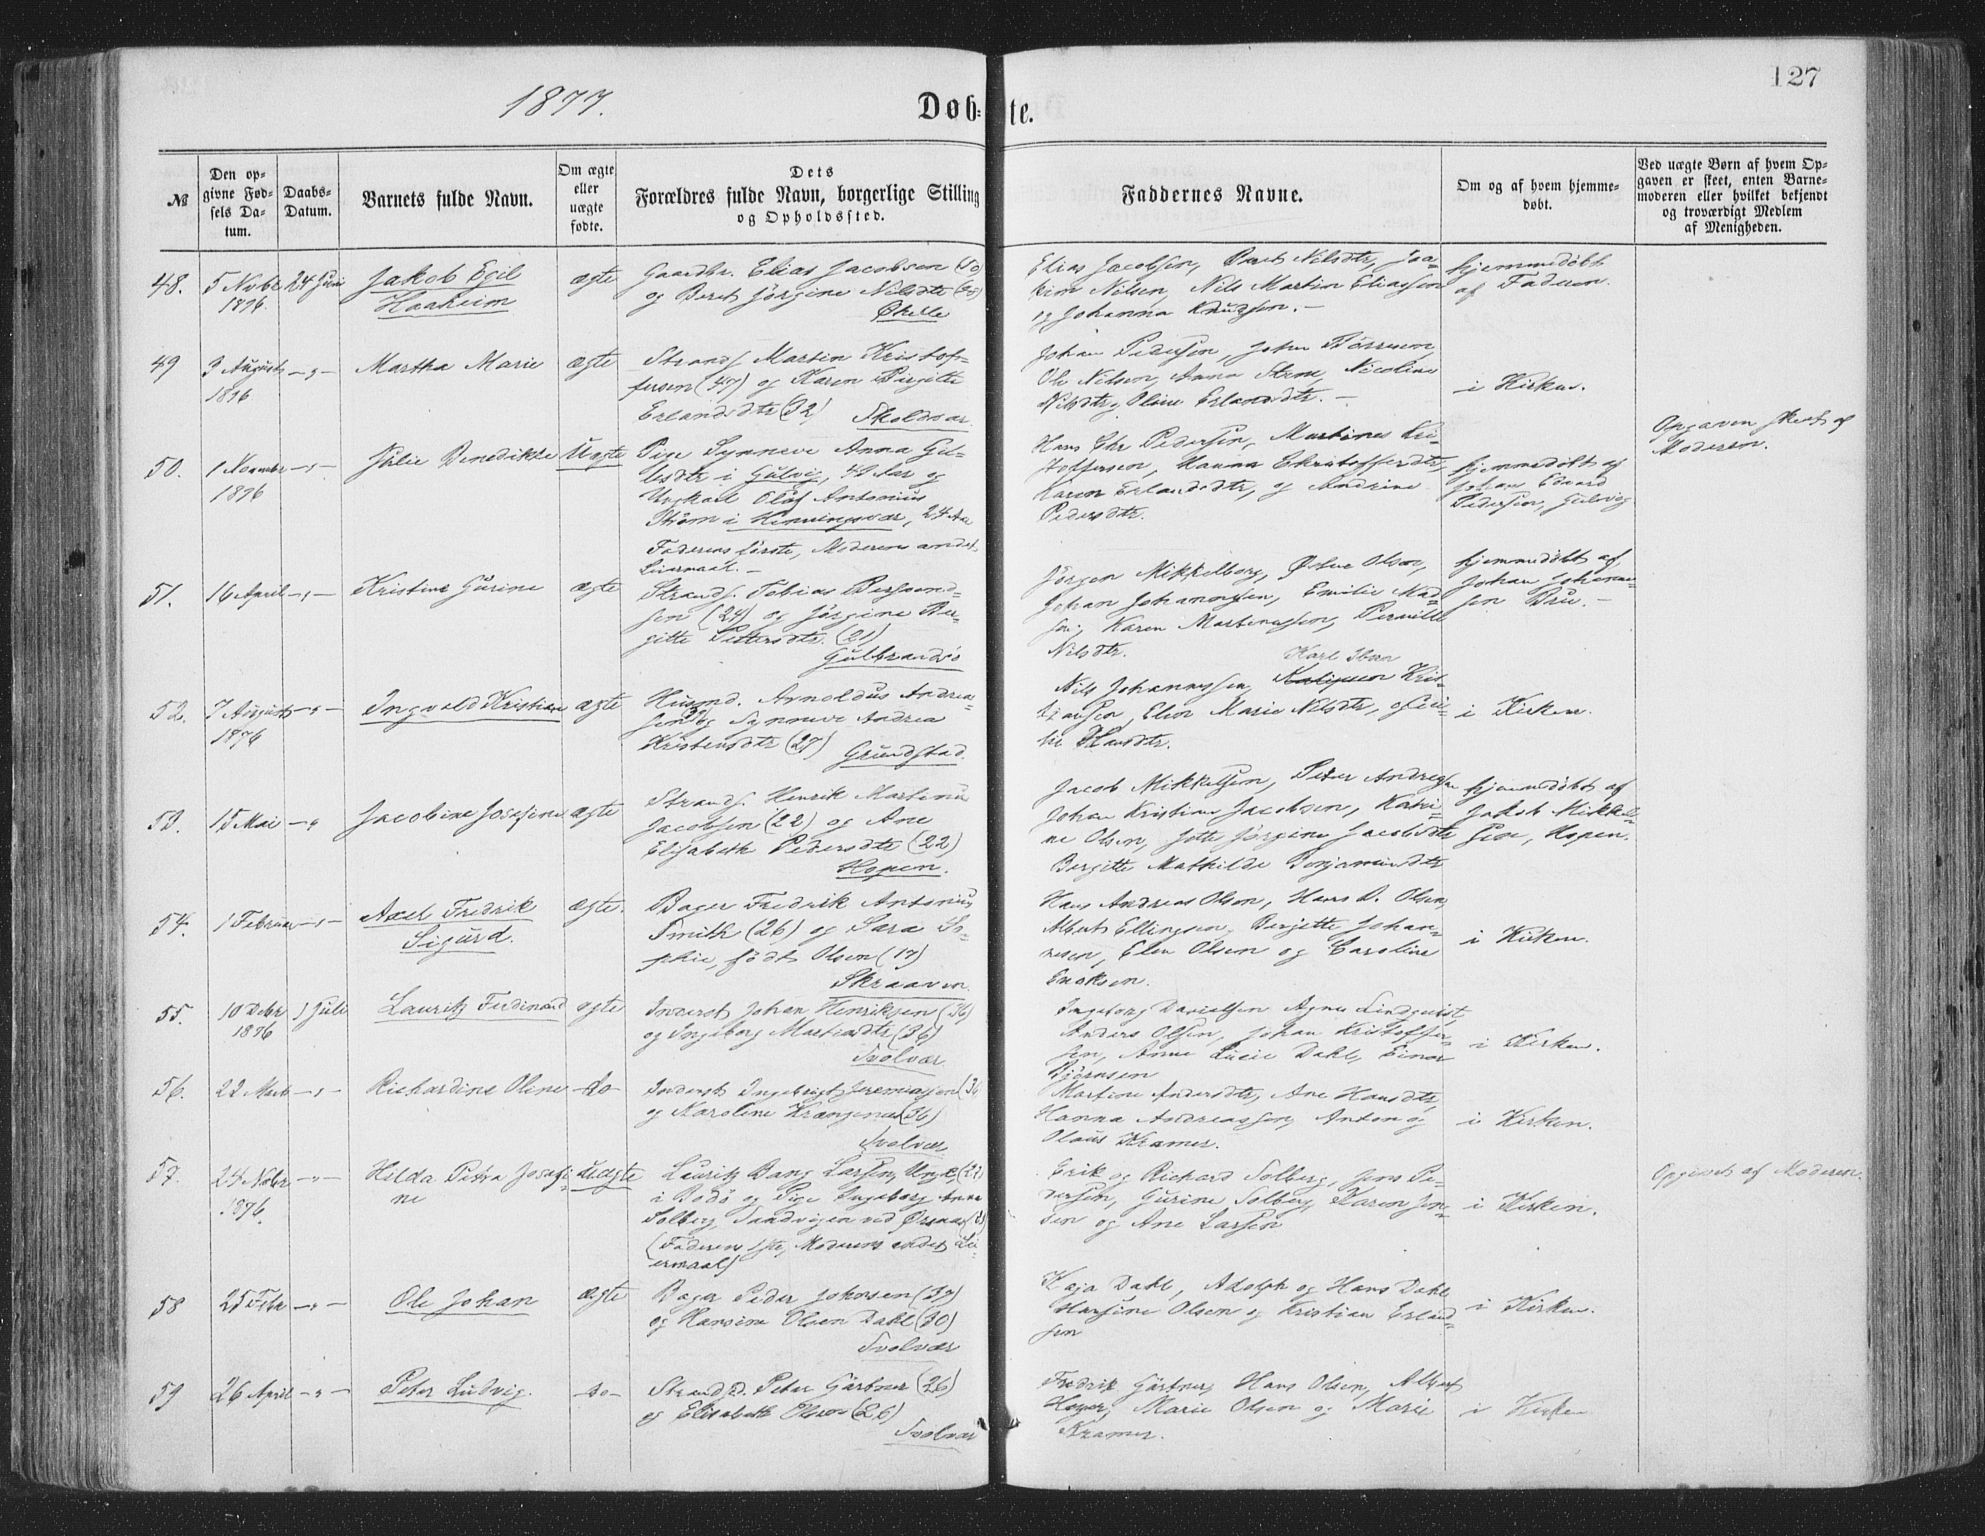 127
1877.
Døb-
te.
№
Den op-
givne Fød-
sels Da-
tum.
Daabs-
Datum.
Barnets fulde Navn.
Om ægte
eller
uægte
fødte.
Dets
Forældres fulde Navn, borgerlige Stilling
og Opholdssted.
Faddernes Navne.
Om og af hvem hjemme-
døbt.
Ved uægte Børn af hvem Op-
gaven er skeet, enten Barne-
moderen eller hvilket bekjendt
og troværdigt Medlem
af Menigheden.
48.
5 Novbr
1876.
24 Juni
Jakob Egil
Haakeim
ægte
Gaardbr. Elias Jacobsen (50)
og Beret Jørgine Nilsdtr
Elias Jacobsen, Beret Nilsdtr, Joa-
kim Nilsen, Nils Martin Eliassen
og Johanna Knudsen. —
hjemmedøbt
af Faderen.
49
3 August
1876
— " —
Martha Marie
ægte
Strands. Martin Kristof-
fersen (47) og Karen Birgitte
Erlandsdtr (32) Skoldvær
Johan Pedersen, John
Ole Nilsen, Anna Steno, Nicoline
Nilsdtr, Oline Erlandsdtr. —
i Kirken.
50.
1 November
1876
— " —
Julie Benedikte
Uægte
Pige Synneve Anna Gu-
lisdtr i Gulvig, 42 Aar og
Ungkarl Olof Antonius
Strøm i Henningsvær, 24 Aar
Faderens første, Moderens andet
Leiermaal. —
Hans Chr Pedersen, Martines Kri-
stoffersen, Hanna Christoffersdtr,
Karen Erlandsdtr, og Andrine
Pedersdtr.
hjemmedøbt af
Johan Edvard
Pedersen, Gulvig
Opgaven skeet af
Moderen.
51.
16 April
— " —
Kristine Gurine
ægte
Strands. Tobias
sen (24) og Jørgine Bir-
gitte Pettersdtr. (21)
Gulbrandsø
Jørgen Mikkelborg, Østen Olsen,
Johan Johannesen, Emilie Mad-
sen, Karen Martinussen, Pernille
Nilsdtr.
hjemmedøbt af
Johan Johanne-
sen Bru. —
52.
7 August
1876
— " —
Ingvald Kristian
ægte
Husmd. Arnoldus Andrea-
sen og Synneve Andrea
Kristensdtr (27) Grundstad.
Karl Iban
Nils Johannessen, Kris-
tiansen, Elen Marie Nilsdtr,
lie Hansdtr.
i Kirken.
53.
15 Mai
— "
Jacobine Josefine
ægte
Strands. Henrik Martinus
Jacobsen (22) og Ane
Elisabeth Pedersdtr (22)
Hopen.
Jacob Mikkelsen, Peter Andreasen
Johan Kristian Jacobsen, Katri-
ne Olsen, Jette Jørgine Jacobsdtr
Bergitte Mathilde Benjaminsdtr
hjemmedøbt af
Jakob Mikkel-
sen, Hopen.
54.
1 Februar
— " —
Axel Fredrik
Sigurd.
ægte.
Bager Fredrik Antonius
Smith (26) og Sara So-
phie, født Olsen (17)
Skraaven.
Hans Andreas Olsen, Hans D. Olsen,
Albert Ellingsen, Birgitte Johan-
nesen, Elen Olsen og Caroline
Enoksen.
i Kirken.
55.
10 Debr
1876
1 Juli
Lauritz Ferdinand
ægte
Inderst Johan Henriksen (36)
og Ingeborg Martinsdtr (36)
Svolvær
Ingeborg Danielsen Agnes Lindqvist,
Anders Olsen, Johan Kristoffer-
sen, Anne Lucie Dahl, Einar
Bjørnsen
i Kirken.
56.
22 Marts
— " —
Richardine Oline
— do —
Inderst Ingebrigt Jeremiasen
og Karoline (36)
Svolvær
Martine Andersdtr, Ane Hansdtr,
Hanna Andreassen, Anton og
Olaus Kramer.
i Kirken.
57.
24 Nobr
1876.
— " —
Hilda Petra Josefi-
ne
uægte
Lauritz Bang Larsen, Ungk. (22)
i Bodø og Pige Ingeborg Anna
Solberg, Sandvigen ved Ørsnæs
(Faderens 1ste, Moderens andet Lei-
ermaal)
Erik og Richard Solberg, Jens Pe-
dersen, Gurine Solberg, Karen Jen-
sen og Ane Larsen
i Kirken.
Opgivet af Moderen.
58
25 Febr
— " —
Ole Johan
ægte
Bager Peder Johnsen (37)
og Hansine Olsen Dahl (30)
Svolvær
Kaja Dahl, Adolph og Hans Dahl
Hansine Olsen og Kristian Erland-
sen
i Kirken.
59
26 April
— " —
Peter Ludvig.
— do —
Strands. Peter Gärtner (26)
og Elisabeth Olsen (26)
Svolvær
Fredrik Gärtner, Hans Olsen, Albert
Høyer, Marie Olsen og Marie
Kramer.
i Kirken